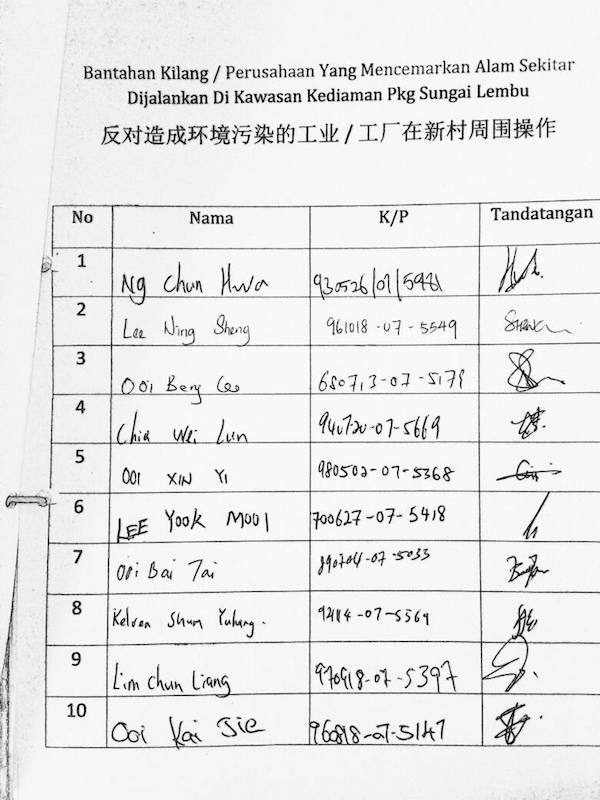 Bantahan Kilang / Perusahaan Yang Mencemarkan Alam Sekitar
Dijalankan Di Kawasan Kediaman Pkg Sungai Lembu
反对造成环境污染的工业 / 工厂在新村周围操作
No Nama K/P Tandatangan
1 Ng Chun Hwa 930526/07/5981
2 Lee Ning Sheng 961018-07-5549
3 Ooi Beng 680713-07-5179
4 Chia Wei Lun 940720-07-5669
5 OOI XIN YI 980502-07-5368
6 LEE YOOK MOOI 700627-07-5418
7 Ooi Bai Tai 890704-07-5033
8 Kelven Shum
9 Lim Chun Liang 970918-07-5397
10 Ooi Kai Jie 960818-07-5147